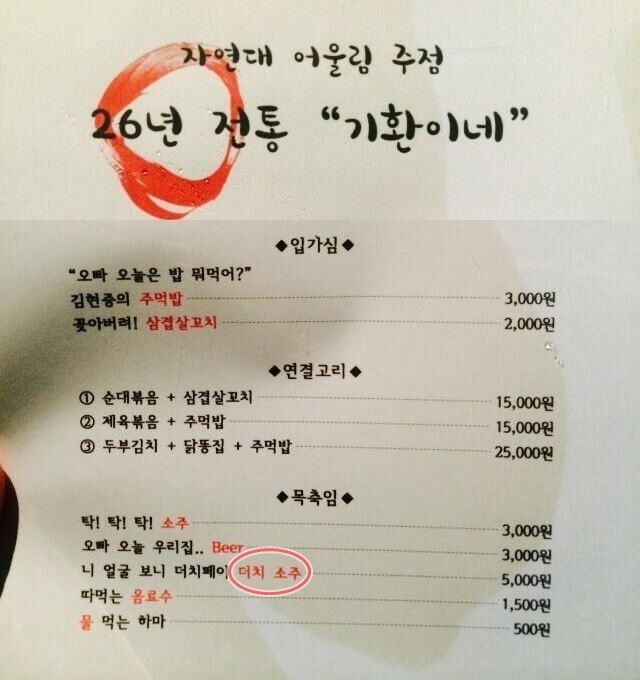 자연대 어울림 주점
26년 전통 “기환이네”
◆입가심◆
“오빠 오늘은 밥 뭐먹어?”
김현중의 주먹밥 3,000원
꽂아버려! 삼겹살꼬치 2,000원
◆연결고리◆
① 순대볶음 + 삼겹살꼬치 15,000원
② 제육볶음 + 주먹밥 15,000원
③ 두부김치 + 닭똥집 + 주먹밥 25,000원
◆목축임◆
탁! 탁! 탁! 소주 3,000원
오빠 오늘 우리집.. Beer 3,000원
니 얼굴 보니 더치페이 더치 소주 5,000원
따먹는 음료수 1,500원
물 먹는 하마 500원